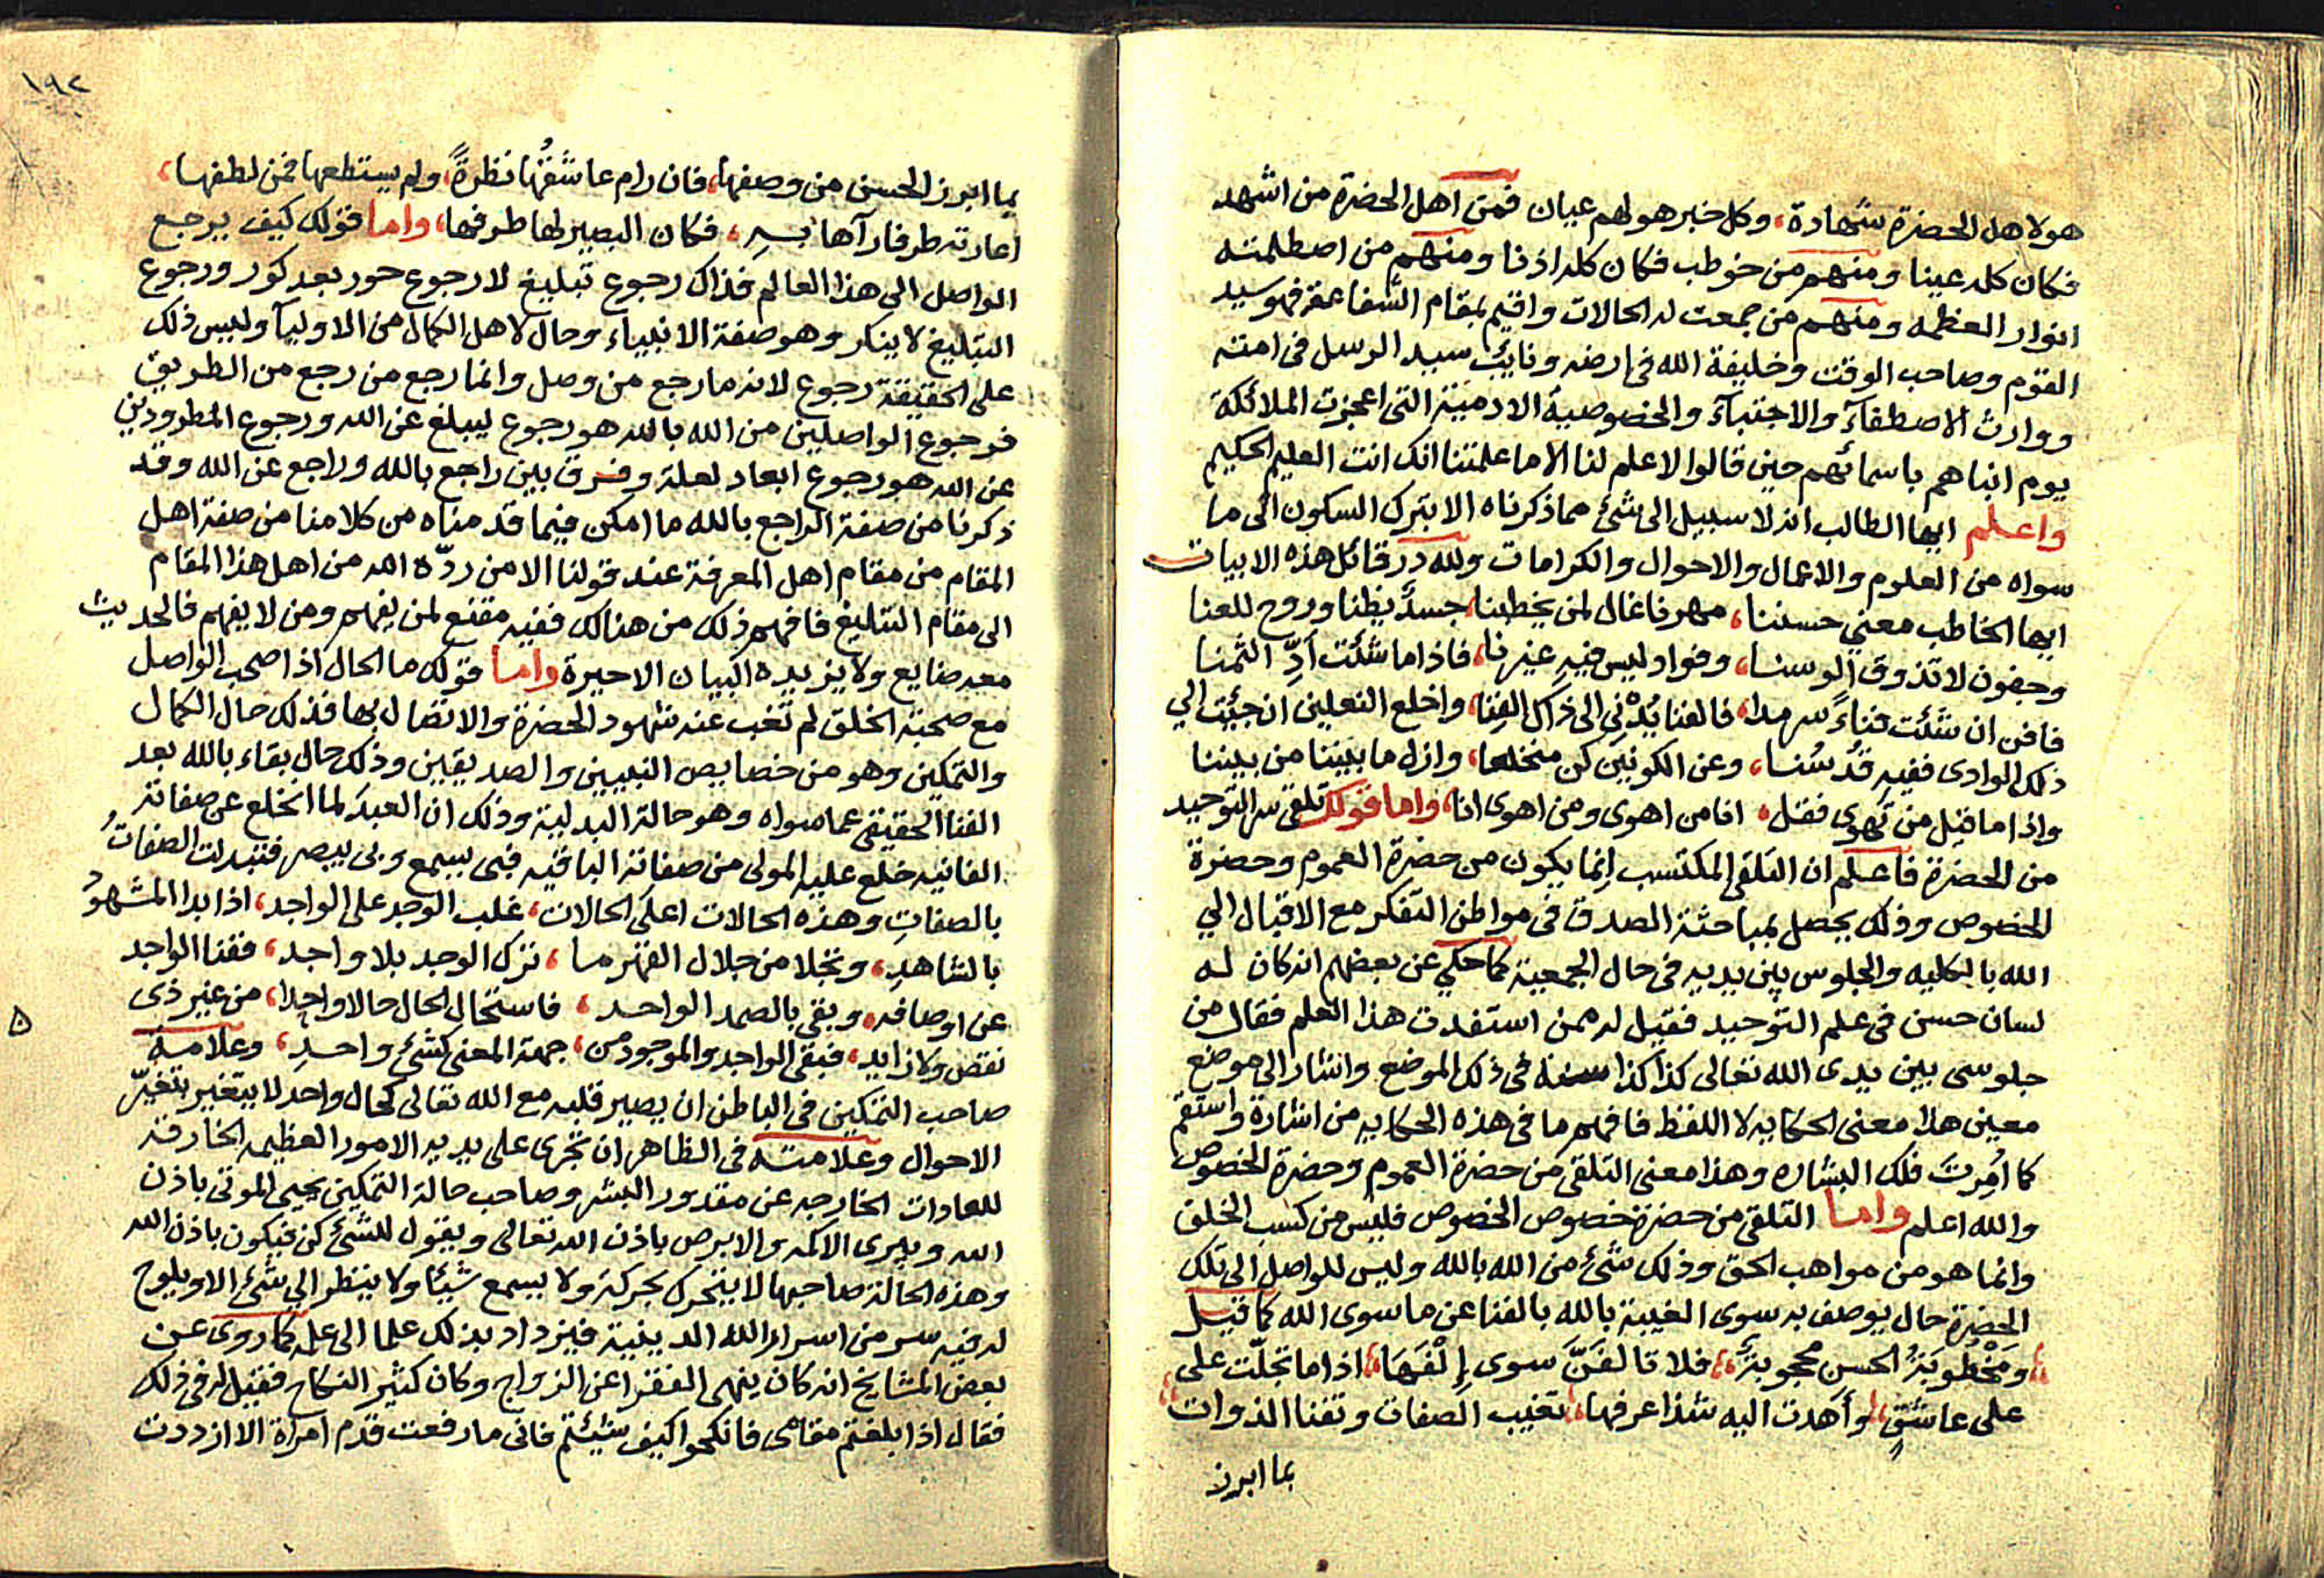 هولاهل الحضرة شهادة، وكل خبر هولهم عيان فمن اهل الحضرة من اشهد
فكان كله عينا ومنهم من خوطب فكان كله اذنا ومنهم من اصطلمته
انوار العظمه ومنهم من جمعت له الحالات واقيم بمقام الشفاعة فهو سيد
القوم وصاحب الوقت وخليفة الله فى ارضه ونايب سيد الرسل فى امته
ووارث الاصطفآء والاجتبآء والخصوصية الادمية التى اعجزت الملائكة
يوم انباهم باسمائهم حين قالوا لاعلم لنا الا ما علمتنا انك انت العليم الحكيم
واعلم ايها الطالب انه لاسبيل الى شئ مما ذكرناه الا بترك السكون الى ما
سواه من العلوم والاعمال والاحوال والكرامات ولله در قائل هذه الابيات
ايها الخاطب معني حسننا، مهرنا غال لمن يخطبنا، جسدٌ يظنا وروح للعنا
وجفون لا تذوق الوسنا، وفواد ليس فيه غيرنا، فاذا ما شئت أدِّ الثمنا
فافن ان شئت فناءً سرمدا، فالفنا يُدْني الى ذاك الفِنا، واخلع النعلين ان جيئت الي
ذلك الوادى ففيه قدسُنا، وعن الكونين كن منخلعا، وازل ما بيننا من بيننا
واذا ما قيل من تهوى فقل، انا من اهوى ومن اهوى انا، واما قولك تلقى سر التوحيد
من الحضرة فاعلم ان التلقى المكتسب انما يكون من حضرة العموم وحضرة
الخصوص وذلك يحصل بمباحثة الصدق فى مواطن التفكر مع الاقبال الي
الله بالكليه والجلوس بين يديه فى حال الجمعية كما حكي عن بعضهم انه كان له
لسان حسن فى علم التوحيد فقيل له ممن استفدت هذا العلم فقال من
جلوسى بين يدى الله تعالى كذا كذا سنة فى ذلك الموضع واشار الى موضع
معين هذا معنى الحكايه لا اللفظ فافهم ما فى هذه الحكايه من اشارة واستقم
كما امرت فلك البشاره وهذا معنى التلقى من حضرة العموم وحضرة الخصوص
والله اعلم واما التلقى من حضرة خصوص الخصوص فليس من كسب الخلق
وانما هو من مواهب الحق وذلك شئ من الله بالله وليس للواصل الى تلك
الحضرة حال يوصف به سوى الغيبة بالله بالفنا عن ما سوى الله كما قيل
ومخطوبة الحسن محجوبة، فلا تالفنَّ سوى إلفها، اذا ما تجلّت على
على عاشقٍ، وأهدت اليه شذا عرفها، تغيب الصفات وتفنا الذوات
بما ابرز
١٩٢
بما ابرز الحسن من وصفها، فان رام عاشقُها نظرةً، ولم يستطعها فمن لطفها،
اعارته طرفا رآها به، فكان البصير لها طرفها، واما قولك كيف يرجع
الواصل الى هذا العالم فذاك رجوع تبليغ لا رجوع حور بعد كور ورجوع
التبليغ لا ينكر وهو صفة الانبياء وحال لاهل الكمال من الاوليآ وليس ذلك
على الحقيقة رجوع لانه ما رجع من وصل وانما رجع من رجع من الطريق
فرجوع الواصلين من الله بالله هو رجوع ليبلغ عن الله ورجوع المطرودين
عن الله هو رجوع ابعاد لعلة وفرق بين راجع بالله وراجع عن الله وقد
ذكرنا من صفة الراجع بالله ما امكن فيما قدمناه من كلامنا من صفة اهل
المقام من مقام اهل المعرفة عند قولنا الا من ردّه الله من اهل هذا المقام
الى مقام التبليغ فافهم ذلك من هنالك ففيه مقنع لمن يفهم ومن لا يفهم فالحديث
معه ضايع ولا يزيده البيان الا حيرة واما قولك ما الحال اذا صحب الواصل
مع صحبة الخلق لم تغب عنه شهود الحضرة والاتصال بها فذلك حال الكمال
والتمكين وهو من خصايص النبيين والصديقين وذلك حال بقاء بالله بعد
الفنا الحقيقى عما سواه وهو حالة البدلية وذلك ان العبد لما انخلع عن صفاته
الفانيه خلع عليه المولى من صفاته الباقيه فبى يسمع وبى يبصر فتبدلت الصفاتُ
بالصفاتِ وهذه الحالات اعلى الحالات، غلب الوجد على الواجد، اذا بدا المشهودُ
بالشاهدِ، وتجلا من جلال القهر ما، ترك الوجد بلا واجد، ففنا الواجد
عن اوصافه، وبقى بالصمد الواحد، فاستحال الحال حالا واحدا، من غير ذى
نقص ولا زايد، فبقى الواجد والموجود من، جهة المعنى كشئ واحد، وعلامة
صاحب التمكين فى الباطن ان يصير قلبه مع الله تعالى كحال واحد لا يتغير بتغيّر
الاحوال وعلامته فى الظاهر ان تجرى على يديه الامور العظيمه الخارقة
للعادات الخارجه عن مقدور البشر وصاحب حالة التمكين يحيى الموتى باذن
الله ويبرى الاكمه والابرص باذن الله تعالى ويقول للشئ كن فيكون باذن الله
وهذه الحالة صاحبها لا يتحرك بحركة ولا يسمع شيئا ولا ينظر الي شئ الا ويلوح
له فيه سر من اسرار الله الدينية فيزداد بذلك علما الى علمه كما روى عن
بعض المشايخ انه كان ينهى الفقرا عن الزواج وكان كثير النكاح فقيل له فى ذلك
فقال اذا بلغتم مقامى فانكحوا كيف شيئتم فانى ما رفعت قدم امراة الا ازددت